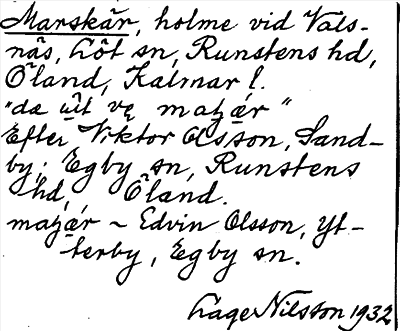 Marskär, holme vid Vals-
näs, Löt sn, Runstens hd,
Öland, Kalmar l.
"dæ ūt vę maʂæ̣r"
Efter Viktor Olsson, Sand-
by, Egby sn, Runstens
hd, Öland.
maʂæ̣r ~ Edvin Olsson, Yt-
terby, Egby sn.
Lage Nilsson 1932